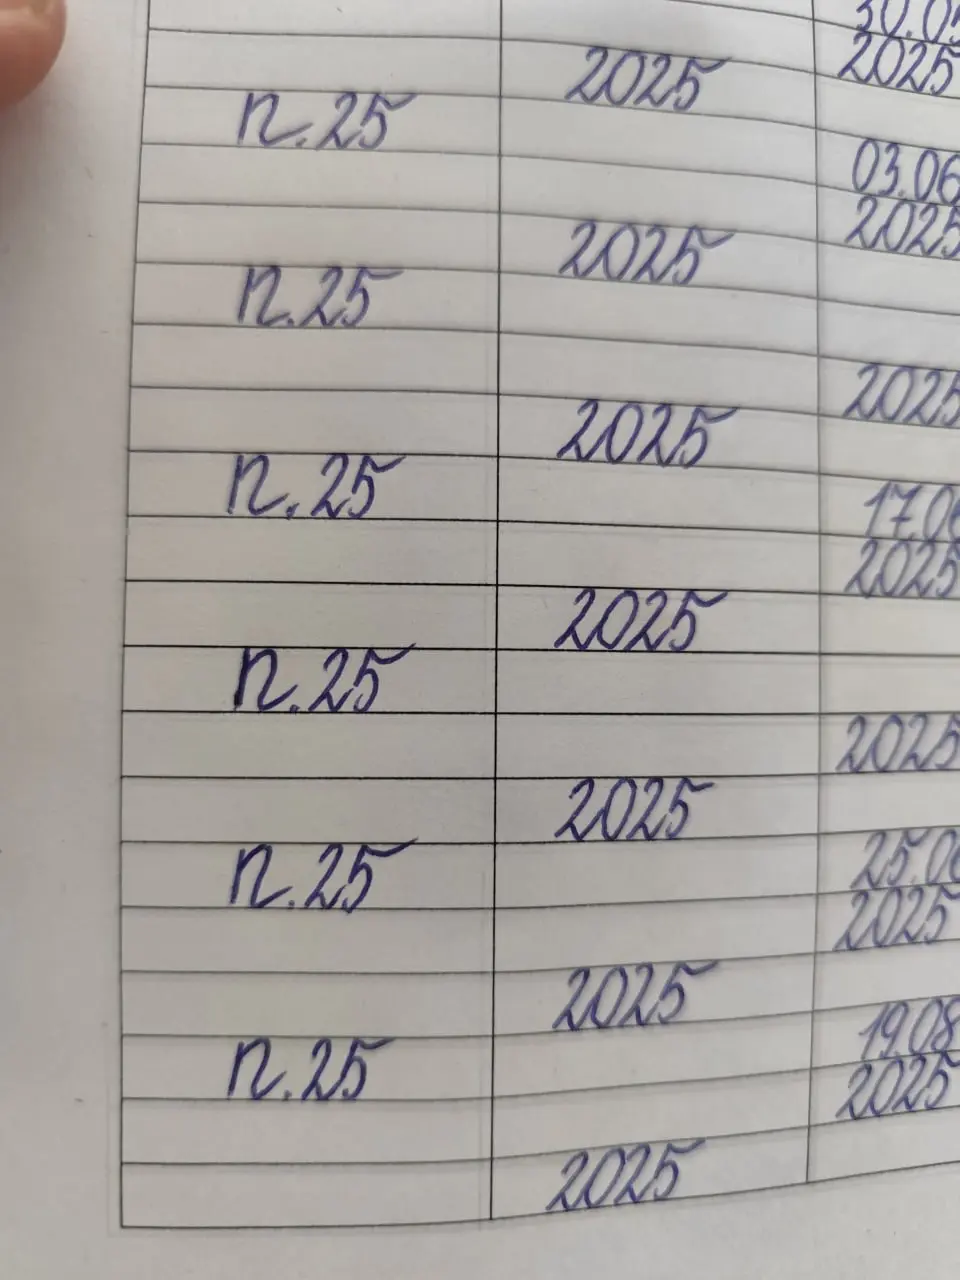 30.05
2025
2025
п.25
03.06
2025
2025
п.25
2025
2025
п.25
17.06
2025
2025
п.25
2025
2025
п.25
25.06
2025
2025
п.25
19.08
2025
2025